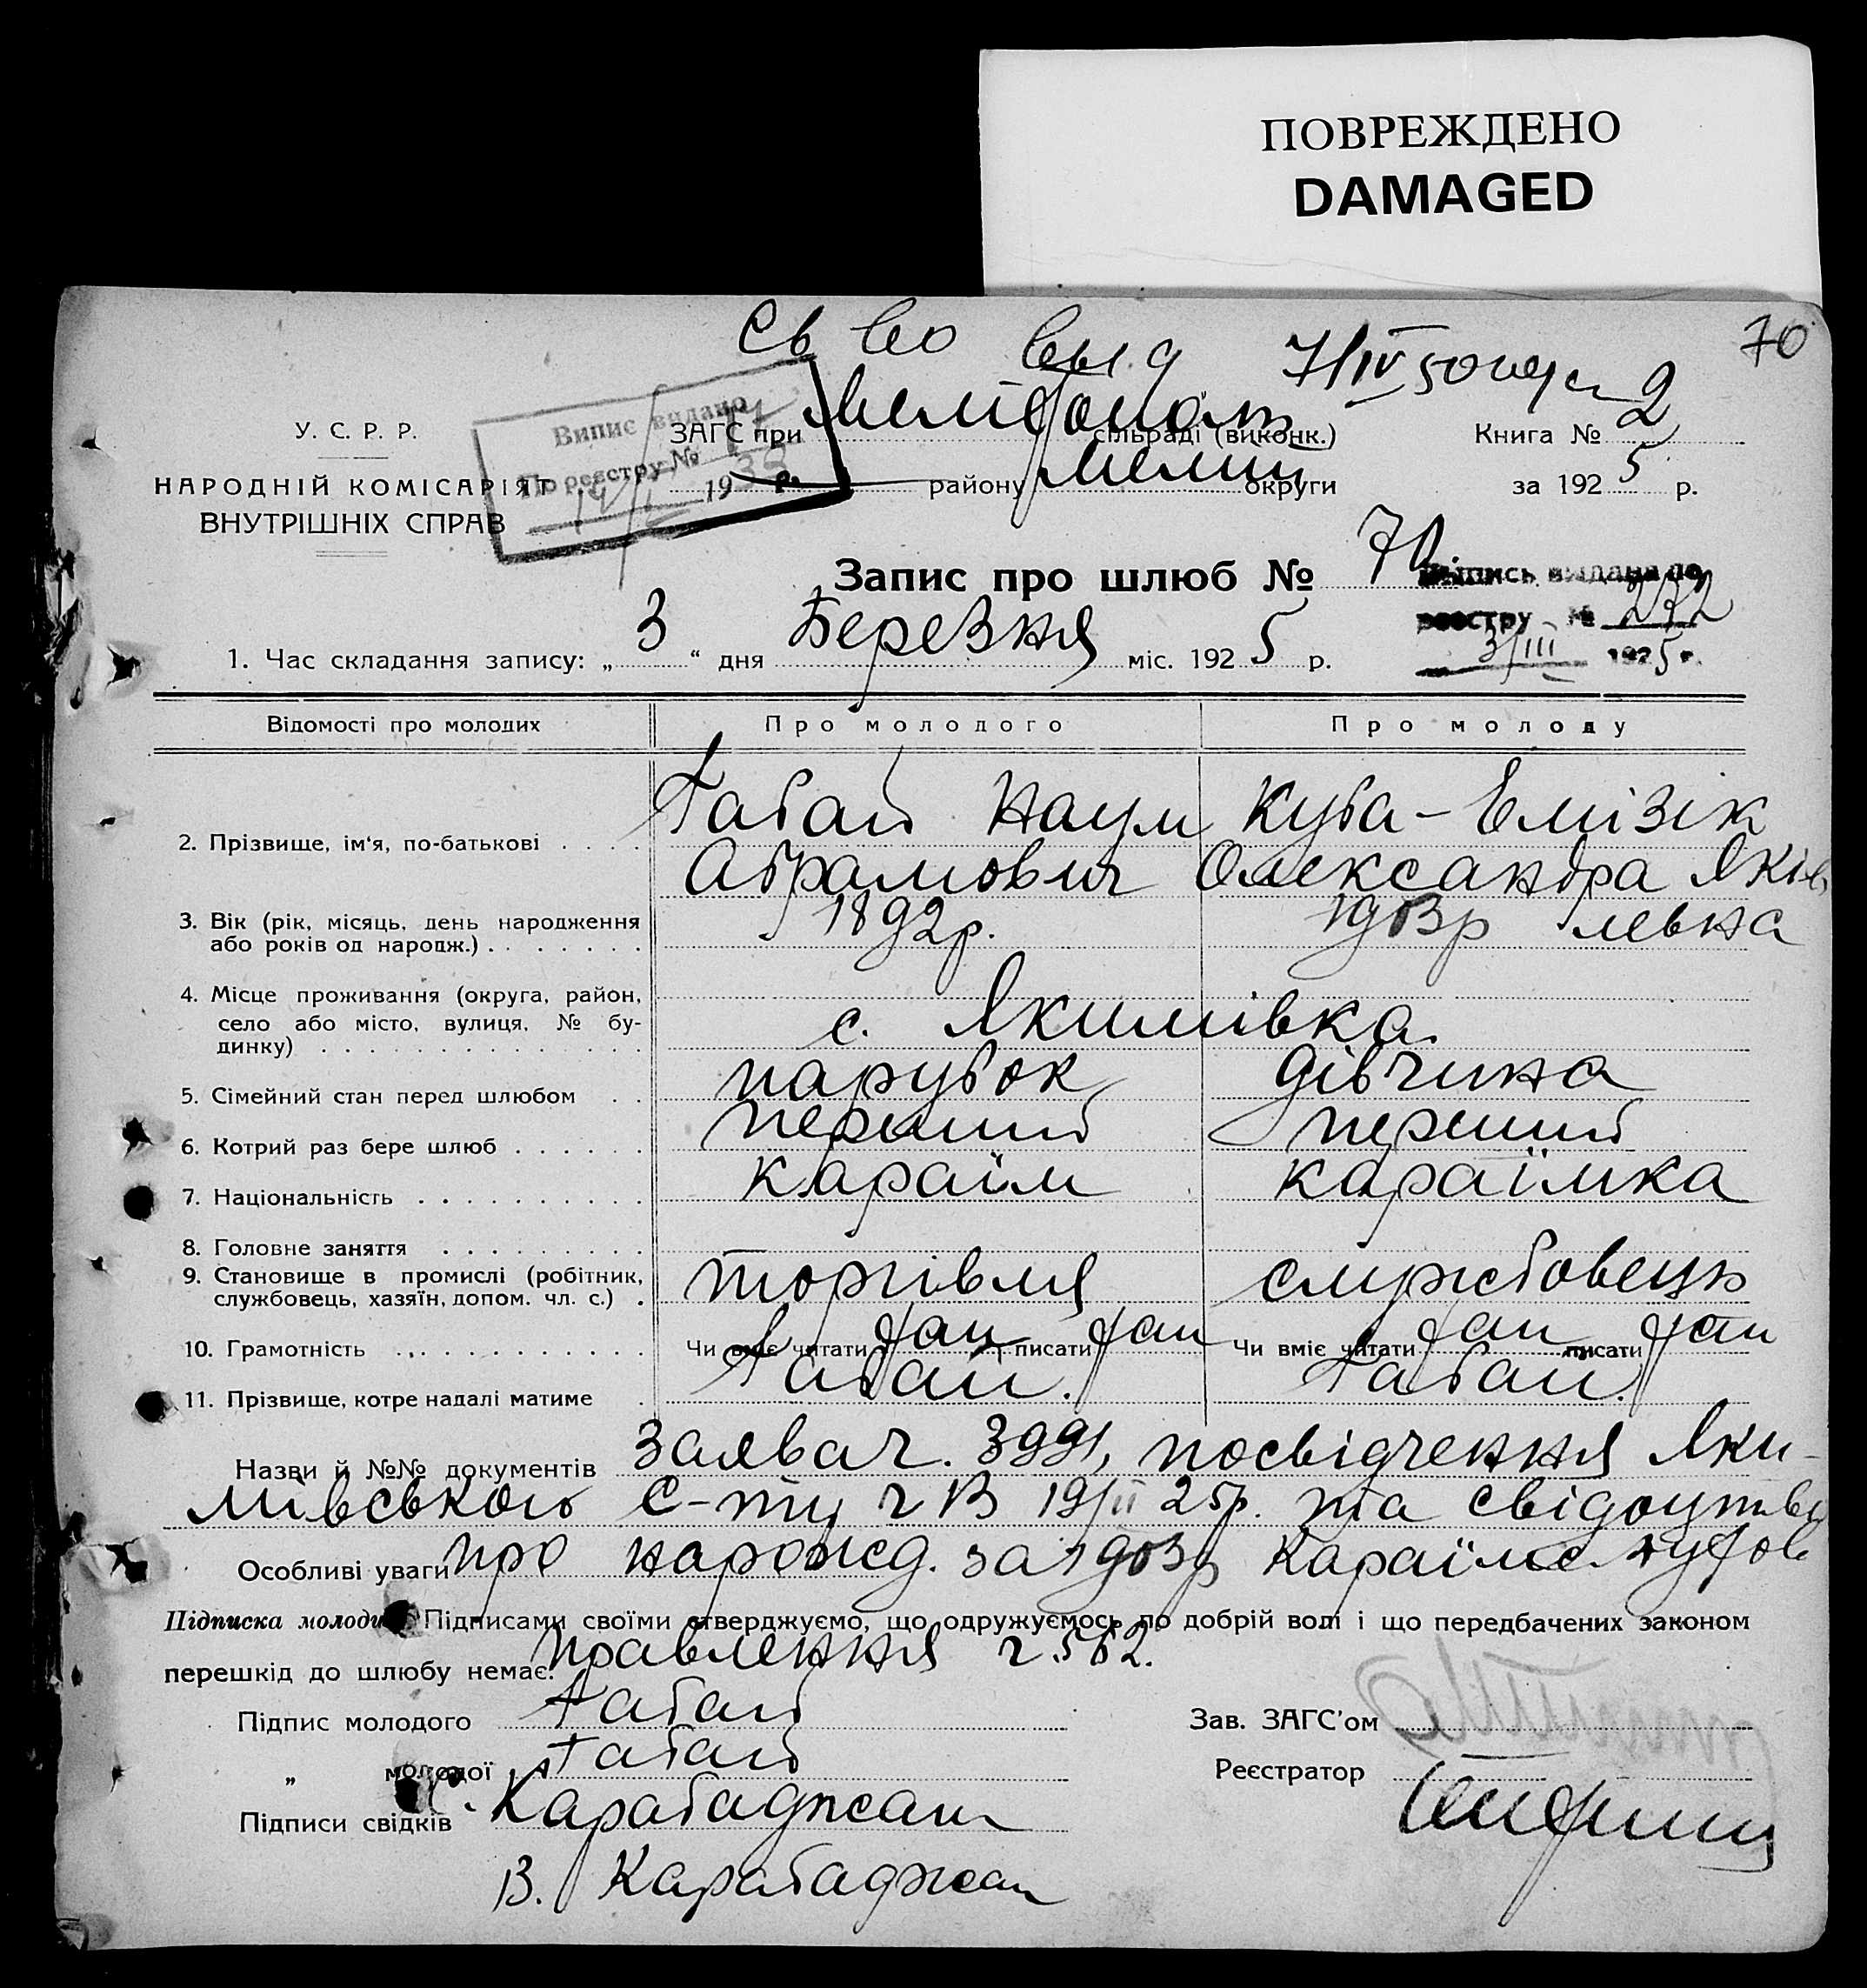 ПОВРЕЖДЕНО
DAMAGED
70
Св во выд 7/IV 50
У. С. Р. Р.
НАРОДНІЙ КОМІСАРІЯТ
ВНУТРІШНІХ СПРАВ
Випис видано
По реєстру №
19 38 р.
ЗАГС при Мелітополь сільраді (виконк.)
району Мелит округи
Книга № 2
за 1925 р.
Запис про шлюб № 70
Выпись выдана по
реестру № 272
3/III 1925 г.
1. Час складання запису: „3“ дня Березня міс. 1925 р.
Відомості про молодих Про молодого Про молоду
2. Прізвище, ім'я, по-батькові . . . . Габай Наум Абрамович Куба-Емізік Олександра Яківлевна
3. Вік (рік, місяць, день народження
або років од народж.) . . . . . . . 1892р. 1903р
4. Місце проживання (округа, район,
село або місто, вулиця, № бу-
динку) . . . . . . . . . . . . . с. Якимівка
5. Сімейний стан перед шлюбом . . парубок дівчина
6. Котрий раз бере шлюб . . . . . . перший перший
7. Національність . . . . . . . . . . караїм караїмка
8. Головне заняття . . . . . . . . .
9. Становище в промислі (робітник,
службовець, хазяїн, допом. чл. с.) . торгівля службовець
10. Грамотність . . . . . . . . . . . Чи вміє читати так писати так Чи вміє читати так писати так
11. Прізвище, котре надалі матиме . Габай. Габай.
Назви й №№ документів Заява ч. 3991, посвідчення Яки-
мівського С-ту ч 13 19/II 25р. та свідоцтво
Особливі уваги про народжд. за 1903р Караїмс. духов
Підписка молодих Підписами своїми стверджуємо, що одружуємось по добрій волі і що передбачених законом
перешкід до шлюбу немає. правлення ч. 562.
Підпис молодого Габай
Зав. ЗАГС'ом
„ молодої Габай
Реєстратор
Підписи свідків Карабаджан
В. Карабаджан